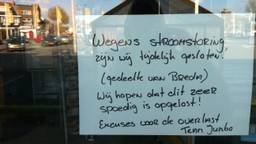 Wegens stroomstoring
zijn wij tijdelijk gesloten!
(gedeelte van Breda)
Wij hopen dat dit zeer
spoedig is opgelost!
Excuses voor de overlast
Team Jumbo